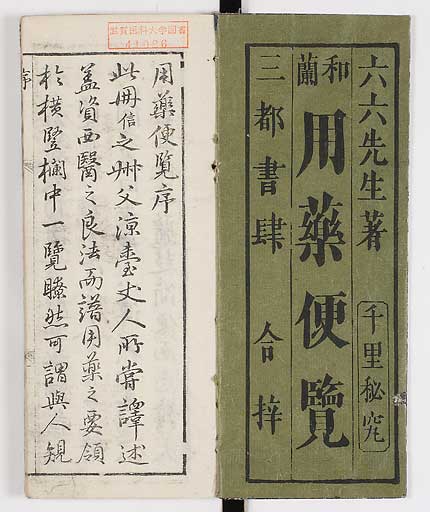 六六先生著 千里秘究
和蘭 用藥便覽
三都書肆 合梓
滋賀医科大学図書
41086
用藥便覧序
此冊信之州父涼臺丈人所嘗譯述
蓋資西醫之良法而譜用藥之要領
於橫竪欄中一覽瞭然可謂與人規
序